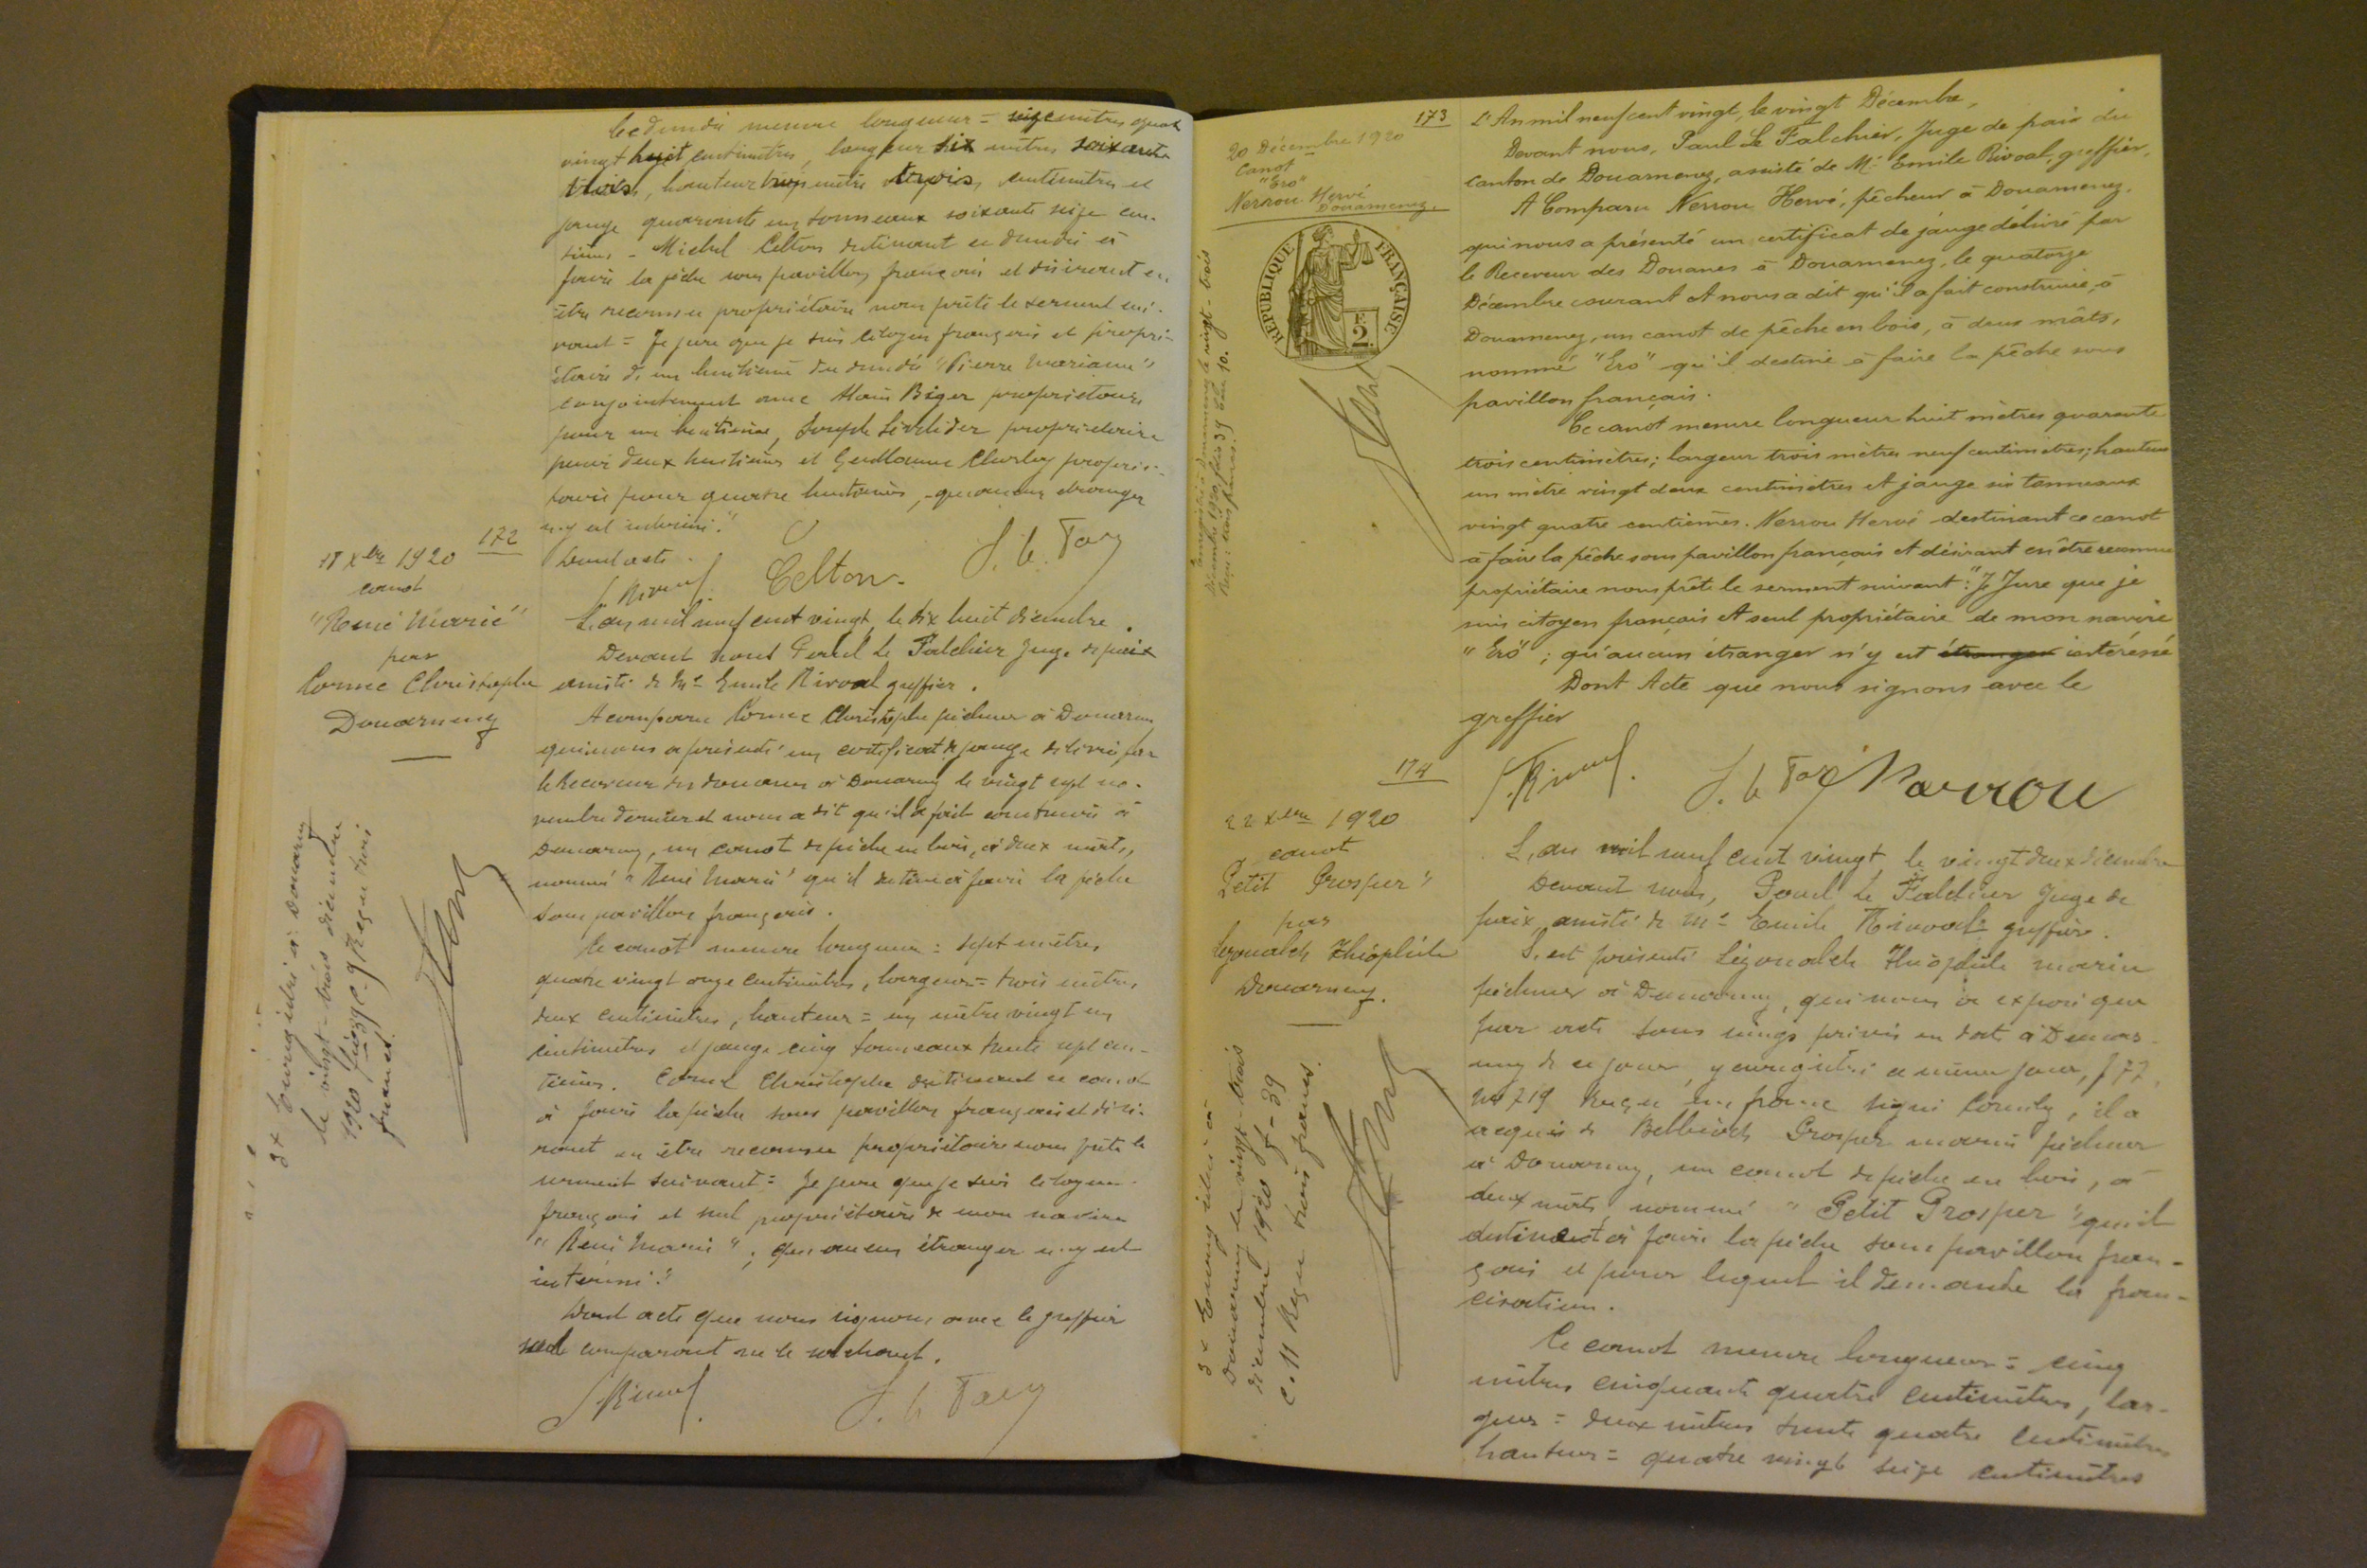 Ce dundée mesure longueur = seize mètres quatre
vingt huit centimètres, largeur six mètres soixante
trois, hauteur trois mètres trois centimètres et
jauge quarante un tonneaux soixante seize cen-
tièmes - Michel Celton destinant ce dundée à
faire la pêche sous pavillon français et désirant en
être reconnu propriétaire nous prête le serment sui-
vant = Je jure que je suis citoyen français et propri-
étaire d'un huitième du dundée "Pierre Marianne"
conjointement avec Alain Biger propriétaire
pour un huitième, Joseph propriétaire
pour deux huitièmes et Guillaume proprié-
taire pour quatre huitièmes, - qu'aucun étranger
n'y est intéressé."
Dont acte -
Celton
172
18 Xbre 1920
canot
"René Marie"
par
Cornec Christophe
Douarnenez
L'an mil neuf cent vingt, le dix huit décembre.
Devant nous Paul Le Falchier Juge de paix
assisté de Me Emile Rivoal greffier.
A comparu Cornec Christophe pêcheur à Douarnenez
qui nous a présenté un certificat de jauge délivré par
le Receveur des douanes à Douarnenez le vingt sept no-
vembre dernier et nous a dit qu'il a fait construire à
Douarnenez, un canot de pêche en bois, à deux mâts,
nommé "René Marie" qu'il destine à faire la pêche
sous pavillon français.
Ce canot mesure longueur = sept mètres
quatre vingt onze centimètres, largeur = trois mètres
deux centimètres, hauteur = un mètre vingt un
centimètres et jauge cinq tonneaux trente sept cen-
tièmes. Cornec Christophe destinant ce canot
à faire la pêche sous pavillon français et dési-
rant en être reconnu propriétaire nous prête le
serment suivant = Je jure que je suis citoyen
français et seul propriétaire de mon navire
"René Marie", qu'aucun étranger n'y est
intéressé."
Dont acte que nous signons avec le greffier
seul comparant ne le sachant.
Enregistré à Douarnenez
le vingt-trois décembre
1920 f° 39 c. 9 Reçu trois
francs.
173
20 Décembre 1920
Canot
"Ero"
Nerrou Hervé
Douarnenez.
REPUBLIQUE FRANÇAISE
2F
Enregistré à Douarnenez le vingt-trois
décembre 1920, folio 39 Case 10.
Reçu: trois francs.
L'An mil neuf cent vingt, le vingt Décembre,
Devant nous, Paul Le Falchier, Juge de paix du
canton de Douarnenez, assisté de Me Emile Rivoal, greffier,
A Comparu Nerrou Hervé, pêcheur à Douarnenez,
qui nous a présenté un certificat de jauge délivré par
le Receveur des Douanes à Douarnenez, le quatorze
Décembre courant et nous a dit qu'il a fait construire, à
Douarnenez, un canot de pêche en bois, à deux mâts,
nommé "Ero" qu'il destine à faire la pêche sous
pavillon français.
Ce canot mesure longueur huit mètres quarante
trois centimètres; largeur trois mètres neuf centimètres; hauteur
un mètre vingt deux centimètres et jauge six tonneaux
vingt quatre centièmes. Nerrou Hervé destinant ce canot
à faire la pêche sous pavillon français et désirant en être reconnu
propriétaire nous prête le serment suivant: "Je Jure que je
suis citoyen français et seul propriétaire de mon navire
"Ero"; qu'aucun étranger n'y est étranger intéressé
Dont Acte que nous signons avec le
greffier
174
22 Xbre 1920
canot
Petit Prosper"
par
Lézoualch Théophile
Douarnenez.
Enregistré à
Douarnenez le vingt-trois
décembre 1920 f° 39
c. 11 Reçu trois francs.
L'an mil neuf cent vingt, le vingt deux décembre
Devant nous, Paul Le Falchier Juge de
paix, assisté de Me Emile Rivoal greffier.
S'est présenté Lézoualch Théophile marin
pêcheur à Douarnenez, qui nous a exposé que
par acte sous seings privés en date à Douarne-
nez de ce jour, y enregistré ce même jour, f 72,
No 719 Reçu un franc signé, il a
acquis de Belbéoch Prosper marin pêcheur
à Douarnenez, un canot de pêche en bois, à
deux mâts nommé "Petit Prosper" qu'il
destinait à faire la pêche sous pavillon fran-
çais et pour lequel il demande la fran-
cisation.
Ce canot mesure longueur = cinq
mètres cinquante quatre centimètres, lar-
geur = deux mètres trente quatre centimètres
hauteur = quatre vingt seize centimètres